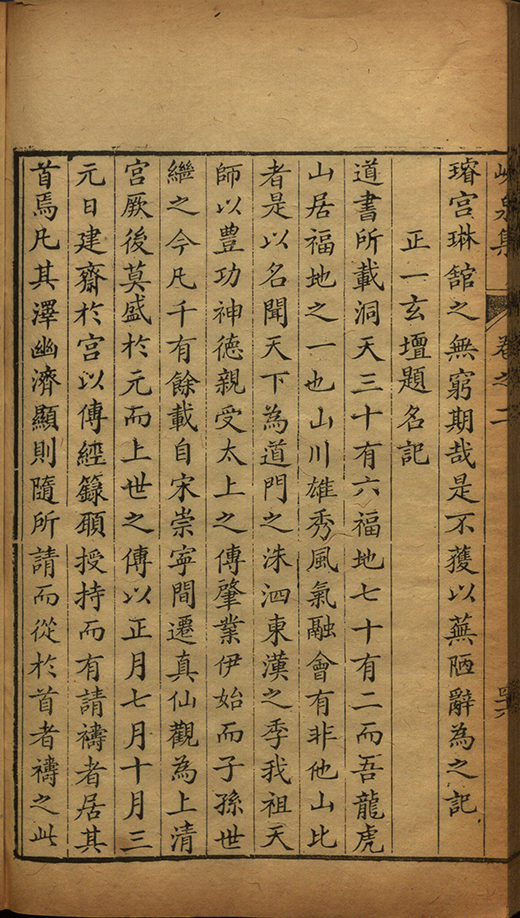 峴泉集 卷之二
璿宮琳舘之無窮期哉是不獲以蕪陋辭為之記
正一玄壇題名記
道書所載洞天三十有六福地七十有二而吾龍虎
山居福地之一也山川雄秀風氣融會有非他山比
者是以名聞天下為道門之洙泗東漢之季我祖天
師以豊功神德親受太上之傳肇業伊始而子孫世
繼之今凡千有餘載自宋崇寧間遷真仙觀為上清
宮厥後莫盛於元而上世之傳以正月七月十月三
元日建齋於宮以傳經籙願授持而有請禱者居其
首焉凡其澤幽濟顯則隨所請而從於首者禱之此